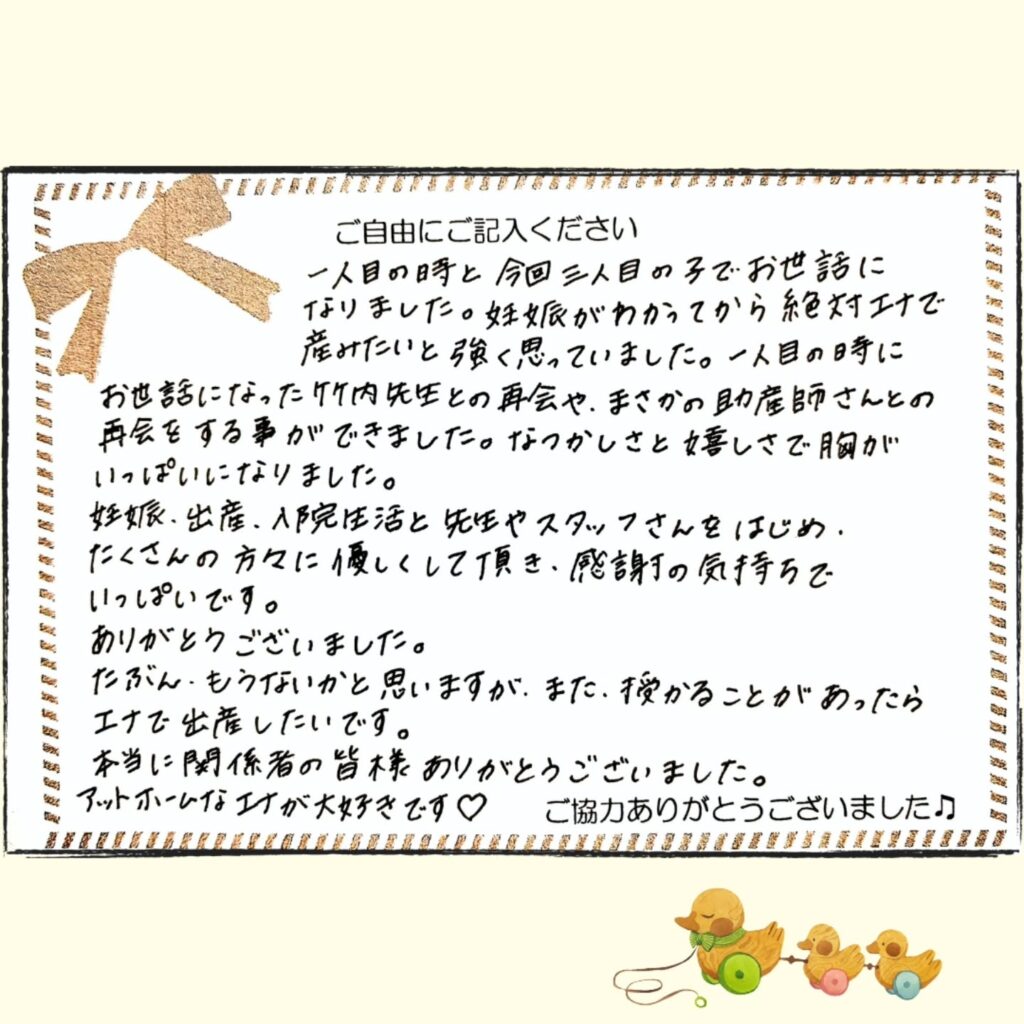 ご自由にご記入ください
一人目の時と今回三人目の子でお世話に
なりました。妊娠がわかってから絶対エナで
産みたいと強く思っていました。一人目の時に
お世話になった竹内先生との再会や、まさかの助産師さんとの
再会をする事ができました。なつかしさと嬉しさで胸が
いっぱいになりました。
妊娠、出産、入院生活と先生やスタッフさんをはじめ、
たくさんの方々に優しくして頂き、感謝の気持ちで
いっぱいです。
ありがとうございました。
たぶん、もうないかと思いますが、また、授かることがあったら
エナで出産したいです。
本当に関係者の皆様ありがとうございました。
アットホームなエナが大好きです♡
ご協力ありがとうございました♫